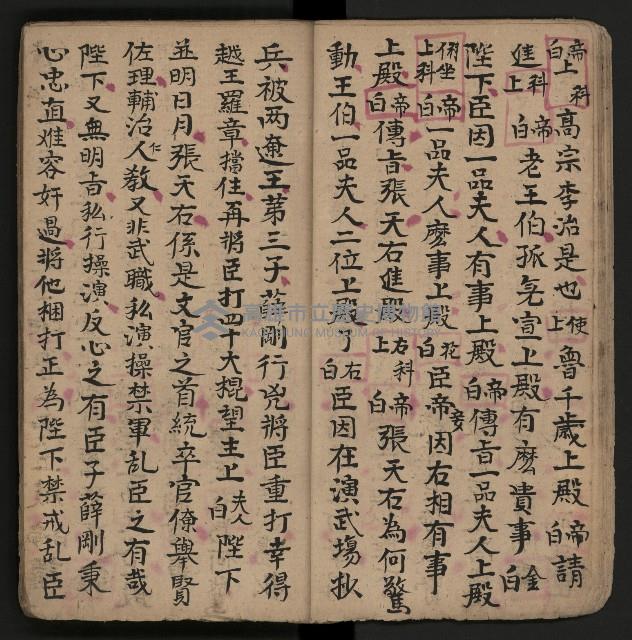 帝上科白高宗李治是也使上魯千歲上殿帝白請
進科上帝白老王伯孤免宣上殿有麼貴事金白
陛下臣因一品夫人有事上殿帝白傳旨一品夫人上殿
俐坐上科帝白一品夫人麼事上殿花白臣妾帝因右相有事
上殿帝白傳旨張天右進殿右科上帝白張天右為何驚
動王伯一品夫人二位上殿了右白臣因在演武場抄
兵被两遼王第三子薛剛行兇將臣重打幸得
越王羅章擋住再將臣打四十大棍望主上夫人白陛下
並明日月張天右係是文官之首統卒官僚舉賢
佐理輔治人仁教又非武職私演操禁軍乱臣之有哉
陛下又無明旨私行操演反心之有臣子薛剛秉
心忠直难容奸過將他捆打正為陛下禁戒乱臣
高雄市立歷史博物館
KAOHSIUNG MUSEUM OF HISTORY